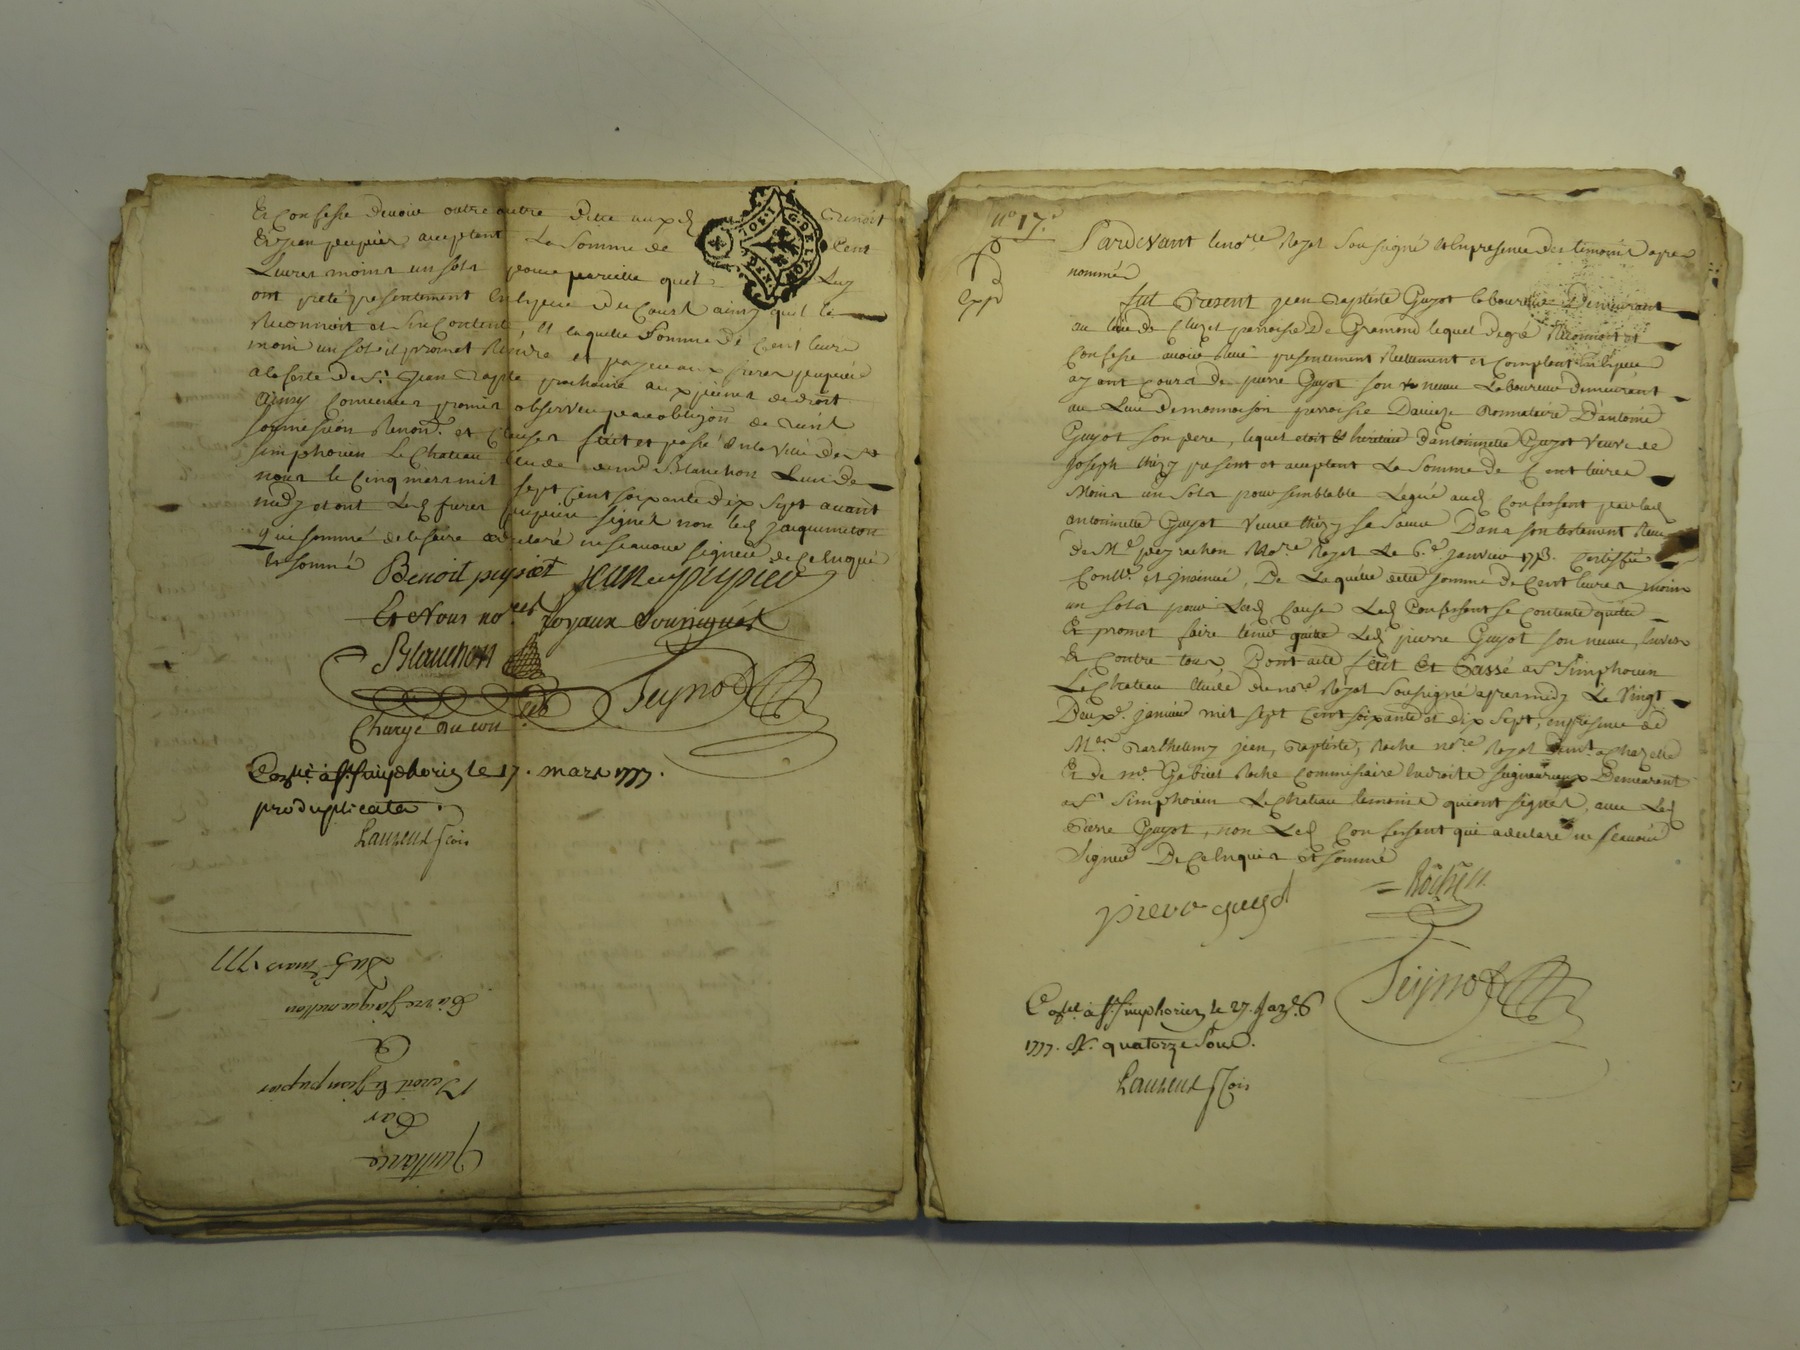 Et Confesse devoir outre autre dette auxd Benoit
Et Jean pupier acceptant La Somme de Cent
Livres moins un sols pour pareille quil Luy
ont preté presentement En Espece du Cours ainsy quil le
Reconnoit et sen Contente, et laquelle Somme de Cent livre
moin un sol il promet Rendre et payer aux freres pupier
a la feste de St Jean Bapte prochaine aux peines de droit
ainsy Comme promis observer par obligõn de
soumission Renon. et Clauses fait et passé En la Ville de St
simphorien Le Chateau Etude de md Blanchon Lun de
nous le Cinq mars mil sept Cent soixante dix sept avant
midy et ont Led freres pupier signés non led Jaquemeton
qui sommé de le faire a declaré ne scavoir signer de ce Enquis
Et sommé
Benoit pupiet jean pupieu
Et Nous nores Royaux Soussignés
Blanchon Peynod
Chargé du con
Conlé à St simphorien le 17. mars 1777.
pro duplicata.
Laurenssson
Du 5e mars 1777
Pierre Jaquemetton
a
Benoit et Jean pupier
Par
Quittance
no 17.
Pardevant le nore Royal Soussigné et En presence des temoins apres
nommés
expd
fut Present Jean Baptiste Guyot laboureur Demeurant
au lieu de Cluzel parroisse de Gramond lequel de gré Reconnoit et
Confesse avoir Reçu presentement Reellement et Comptant En Espece
ayant Cours de pierre Guyot son neveu Laboureur demeurant
au Lieu de parroisse Donnataire D'antoine
Guyot son pere, lequel etoit heritier d'antoinette Guyot veuve de
Joseph thizy present et acceptant La Somme de Cent livres
Moins un Sols pour semblable Legué aud Confessant par lad
antoinette Guyot Veuve thizy Sa Soeur Dans son testement Reçu
de Me Nore Royal Le 6.e janvier 1773.
Conllé. et jnsinué, De Laquelle dette somme de Cent livres moins
un Sols pour Lesd Cause Led Confessant se Contente quitte
Et promet faire tenir quitte Led pierre Guyot son neveu, Envers
Et Contre tous, Dont acte fait Et Passé a St Simphorien
Le Chateau Etude de nore Royal Soussigné apres midy Le Vingt
Deuxe. janvier mil sept Cent soixante et dix sept, en presence de
Me. Barthelemy jean, Baptiste, Roche nore Royal
Et de mr. Gabriel Roche Commissaire En droits seigneuriaux Demeurant
a St Simphorien Le Chateau temoins qui ont signés, avec Led
Pierre Guyot, non Led Confessant qui a declaré ne scavoir
Signer De ce Enquis Et sommé
= Roche
pierre guyot
Peynod
Conlé. à St simphorien le 27. Janer
1777. R. quatorze Sous.
Laurenssson